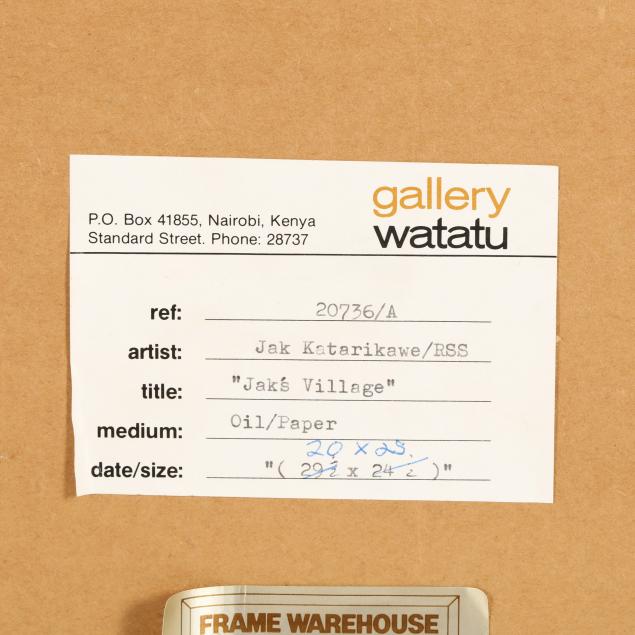 gallery
watatu
P.O. Box 41855, Nairobi, Kenya
Standard Street. Phone: 28737
ref: 20736/A
artist: Jak Katarikawe/RSS
title: "Jak's Village"
medium: Oil/Paper
20 x 25.
date/size: "( 29½ x 24½ )"
FRAME WAREHOUSE